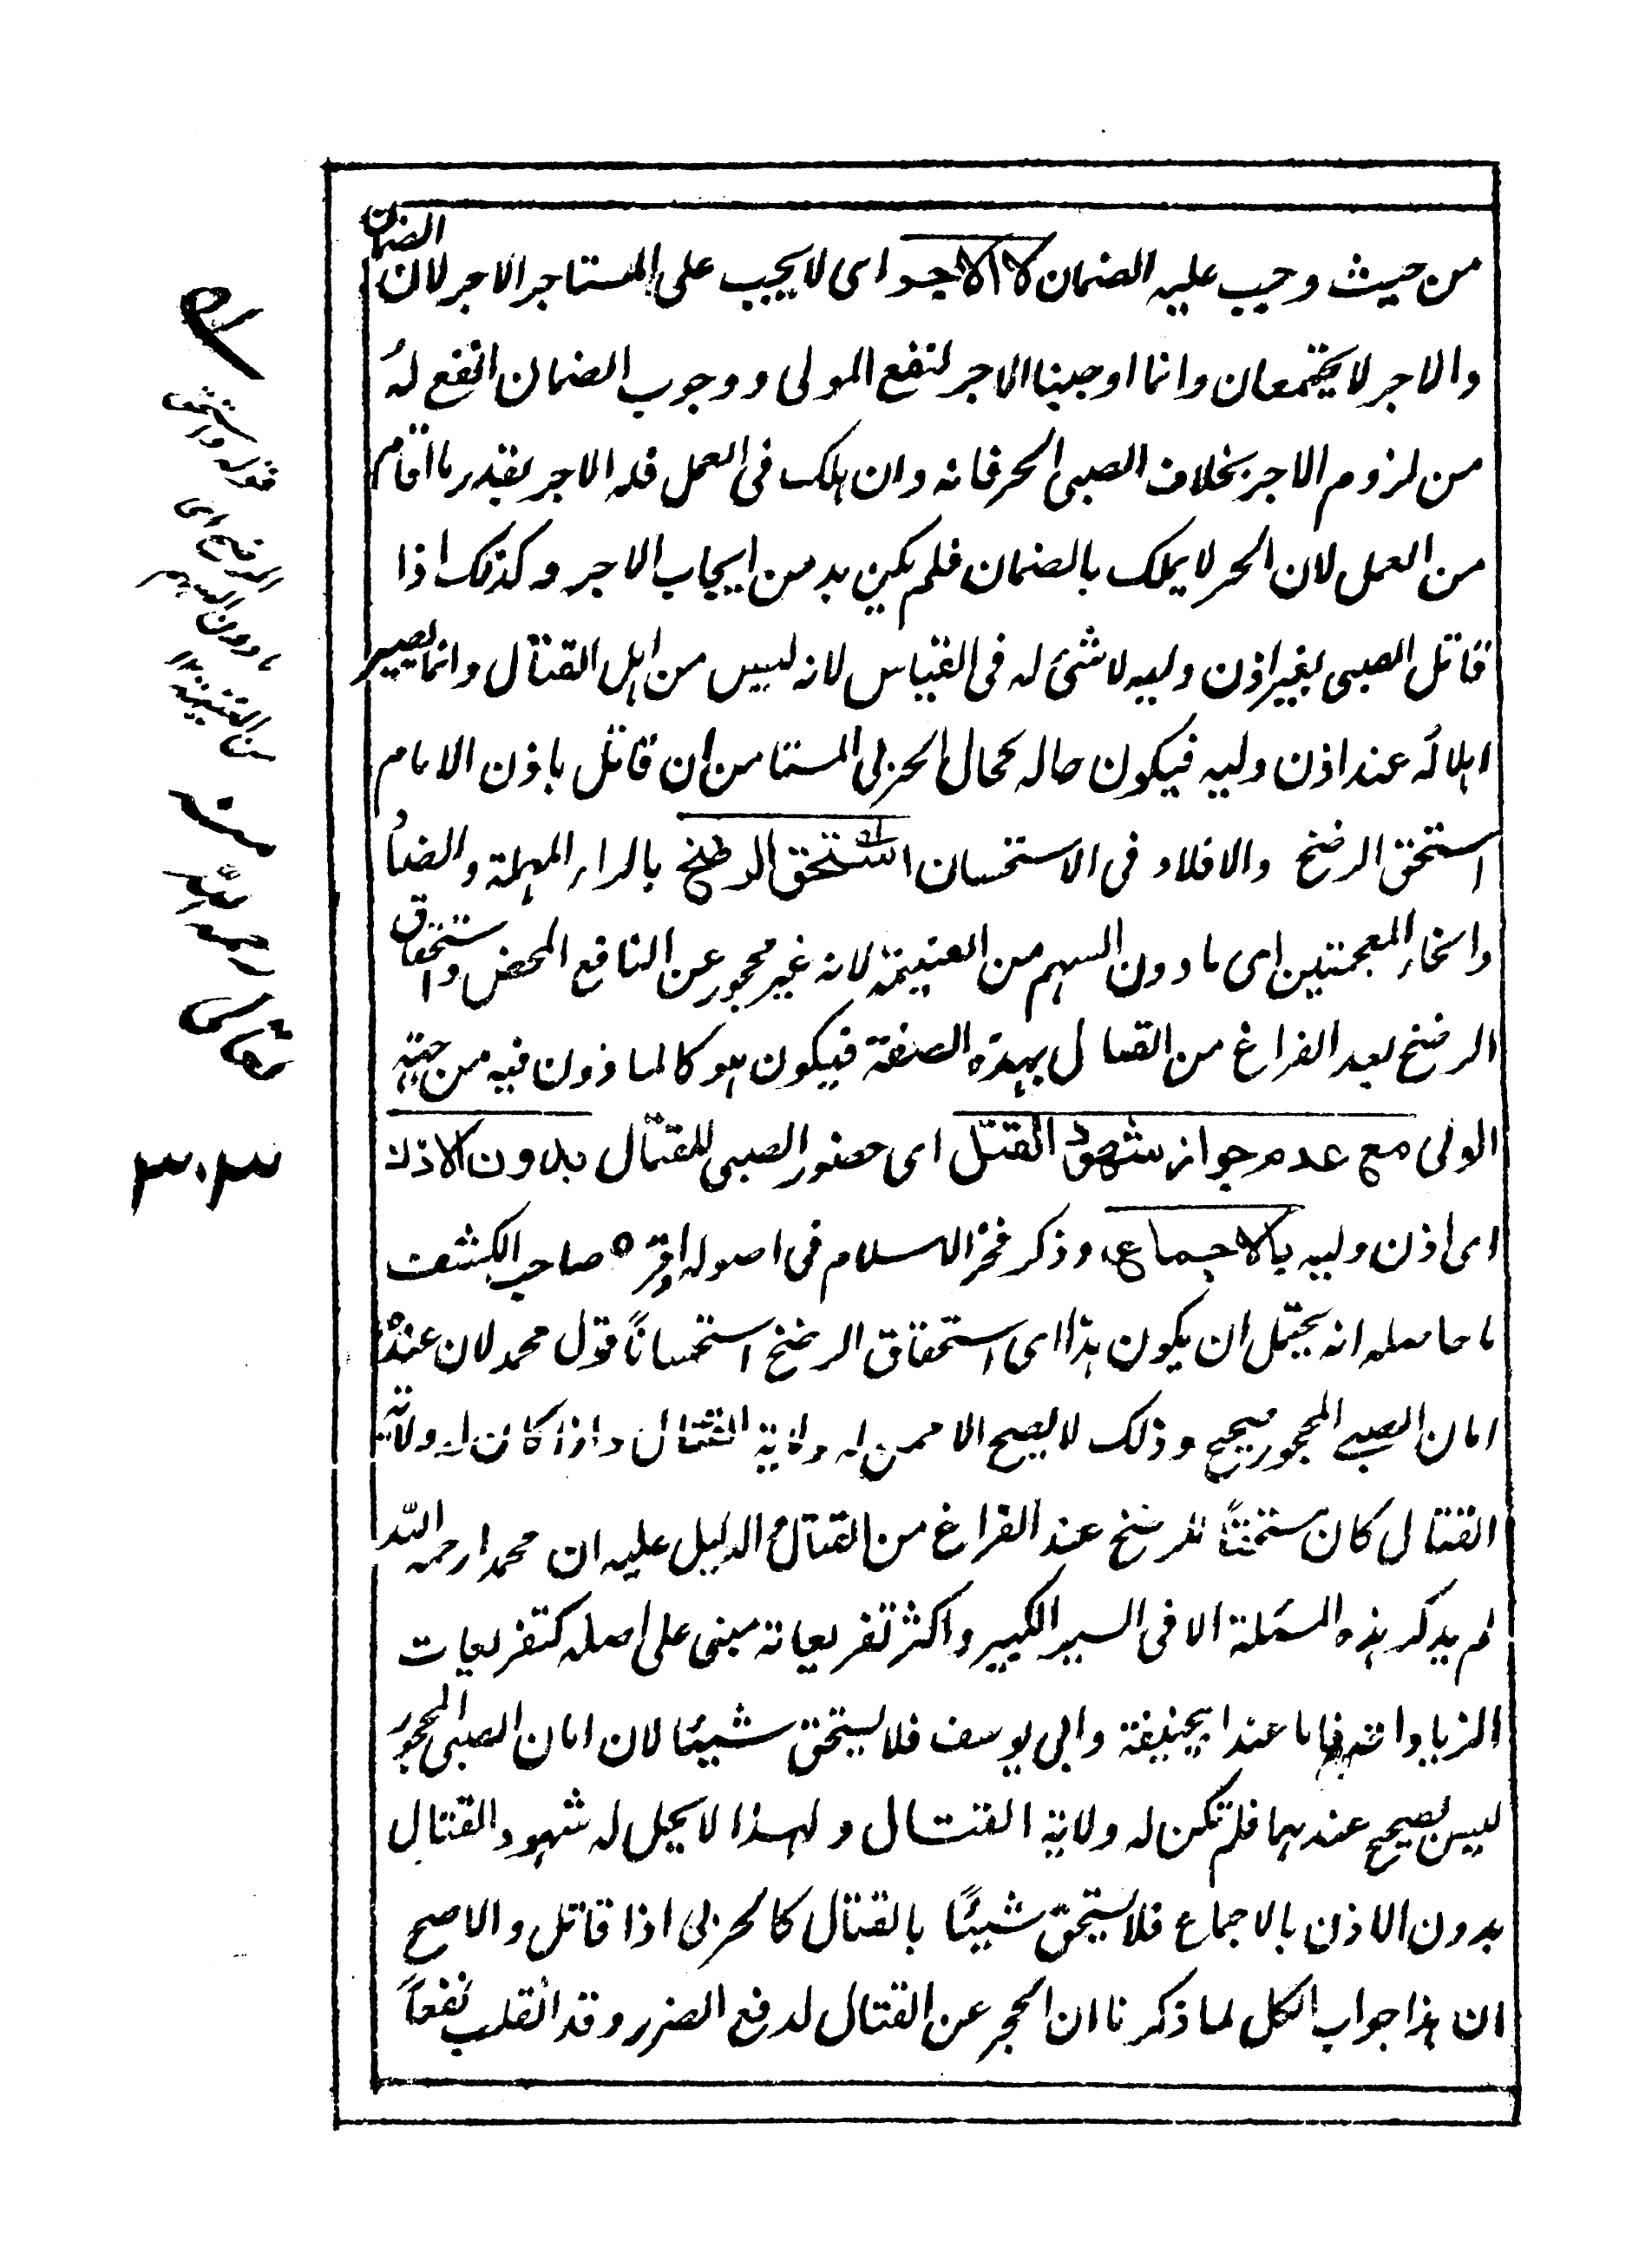 من حيث وجب عليه الضمان لا الاجر اى لا يجب على المستاجر الاجر لان الضمان
والاجر لا يجتمعان وانما اوجبنا الاجر لنفع المولى ووجوب الضمان انفع له
من لزوم الاجر بخلاف الصبى الحر فانه وان هلك فى العمل فله الاجر بقدر ما اقام
من العمل لان الحر لا يملك بالضمان فلم يكن بد من ايجاب الاجر وكذلك اذا
قاتل الصبى بغير اذن وليه لا شئ له فى القياس لانه ليس من اهل القتال وانما يصير
اهلا له عند اذن وليه فيكون حاله كحال الحربى المستامن ان قاتل باذن الامام
استحق الرضخ والا فلا و فى الاستحسان استحق الرضخ بالراء المهملة والضاد
والخاء المعجمتين اى ما دون السهم من الغنيمة لانه غير محجور عن النافع المحض واستحقاق
الرضخ بعد الفراغ من القتال بهذه الصفة فيكون هو كالماذون فيه من جهة
الولى مع عدم جواز شهود القتل اى حضور الصبى للقتال بدون الاذن
اى اذن وليه بالاجماع وذكر فخر الاسلام فى اصوله واقره صاحب الكشف
ما حاصله انه يحتمل ان يكون هذا اى استحقاق الرضخ استحسانا قول محمد لان عنده
امان الصبى المحجور صحيح وذلك لا يصح الا ممن له ولاية القتال واذا كان له ولاية
القتال كان مستحقا للرضخ عند الفراغ من القتال والدليل عليه ان محمدا رحمه الله
لم يذكر هذه المسئلة الا فى السير الكبير واكثر تفريعاته مبنى على اصله كتفريعات
الزيادات فاما عند ابيحنيفة وابى يوسف فلا يستحق شيئا لان امان الصبى المحجور
ليس بصحيح عندهما فلم تكن له ولاية القتال ولهذا لا يحل له شهود القتال
بدون الاذن بالاجماع فلا يستحق شيئا بالقتال كالحربى اذا قاتل والاصح
ان هذا جواب الكل لما ذكرنا ان الحجر عن القتال لدفع الضرر وقد انقلب نفعا
قوله واستحق
الرضخ اى
ما دون السهم
من الغنيمة
منه
رحمه الله
تعالى
۳۰۳